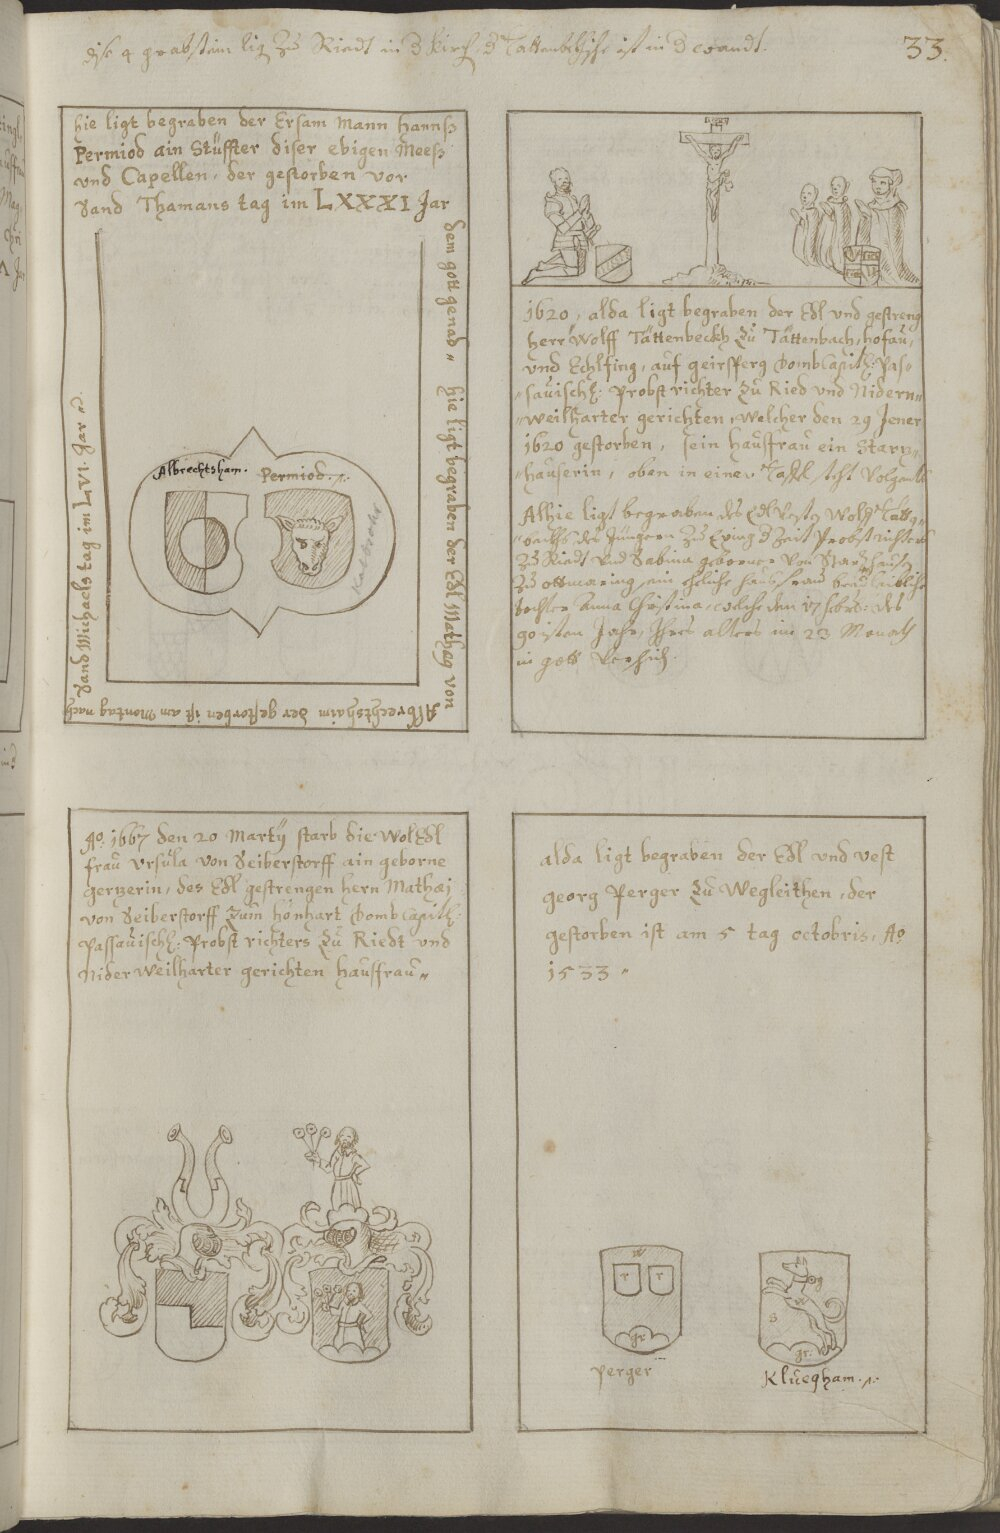 dise 4 grabstain lig Zu Riedt in d Kirch. d Tattenbekhische ist in d wandt.
33.
hie ligt begraben der Ersam Mann Hannß
Permiod ain Stüffter diser ebigen Meeß
und Capellen, der gestorben vor
Sand Thamans tag im LXXXI Jar
dem gott genad„ hie ligt begraben der Edl Mathæg von
Albrechtshaim der gestorben ist an Montag nach
Sand Michaels tag im LVI. Jar„
Albrechtsham.
Permiod.
1620, alda ligt begraben der Edl und gestreng
herr Wolff Tättenbeckh Zu Tättenbach, hofau,
und Echlfing, auf geirsperg DombCapitl: Pas„
„sauischl: Probstrichter Zu Ried und Nidern„
„weilharter gerichten, welcher den 29 Jener
1620 gestorben, sein hausfrau ein Starz„
„hauserin, oben in einer Taffel steht
Alhie ligt begraben des Edl Vesten Wolf Tätten„
des Jüngern Zu Exing d Zeit Probstrichters
Zu Riedt und Sabina geborner von Starzhausen
Zu ottmaring, ehliche
tochter Anna Christina, welche den 17 febr: des
90isten Jahr, Ihres alters im 23 Monath
in gott
Ao. 1667 den 20 Martÿ starb die WolEdl
frau Ursula von Seiberstorff ain geborne
gerzerin, des Edl gestrengen hern Mathæj
von Seiberstorff Zum hönhart DombCapitl:
Passauischl: Probst richters Zu Riedt und
Nider Weilharter gerichten hausfrau„
alda ligt begraben der Edl und vest
georg Perger Zu Wegleithen, der
gestorben ist am 5 tag octobris, Ao
1533„
w
r
r
gr.
S
gr.
Perger
Kluegham.